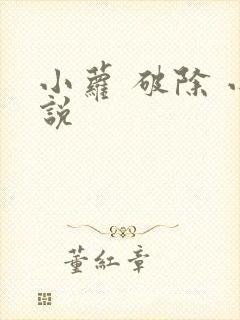 小蘿 破除 小
說
董紅章